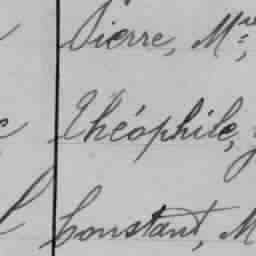 Pierre, Mre;
Théophile,
Constant, M